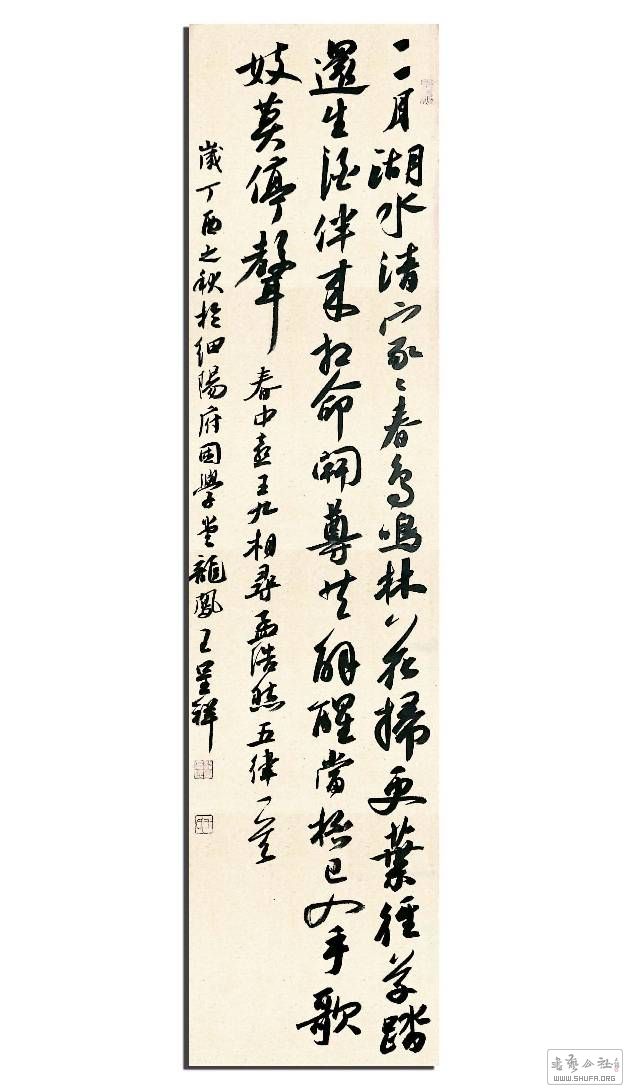 二月湖水清家〻春鳥鳴林花掃更葉徑草踏
還生酒伴來相命開尊共解醒當杯已入手歌
妓莫停聲 春中喜王九相尋孟浩然五律一首
歲丁酉之秋於細陽府國學堂龍鳳王呈祥
書藝公社
WWW.SHUFA.ORG